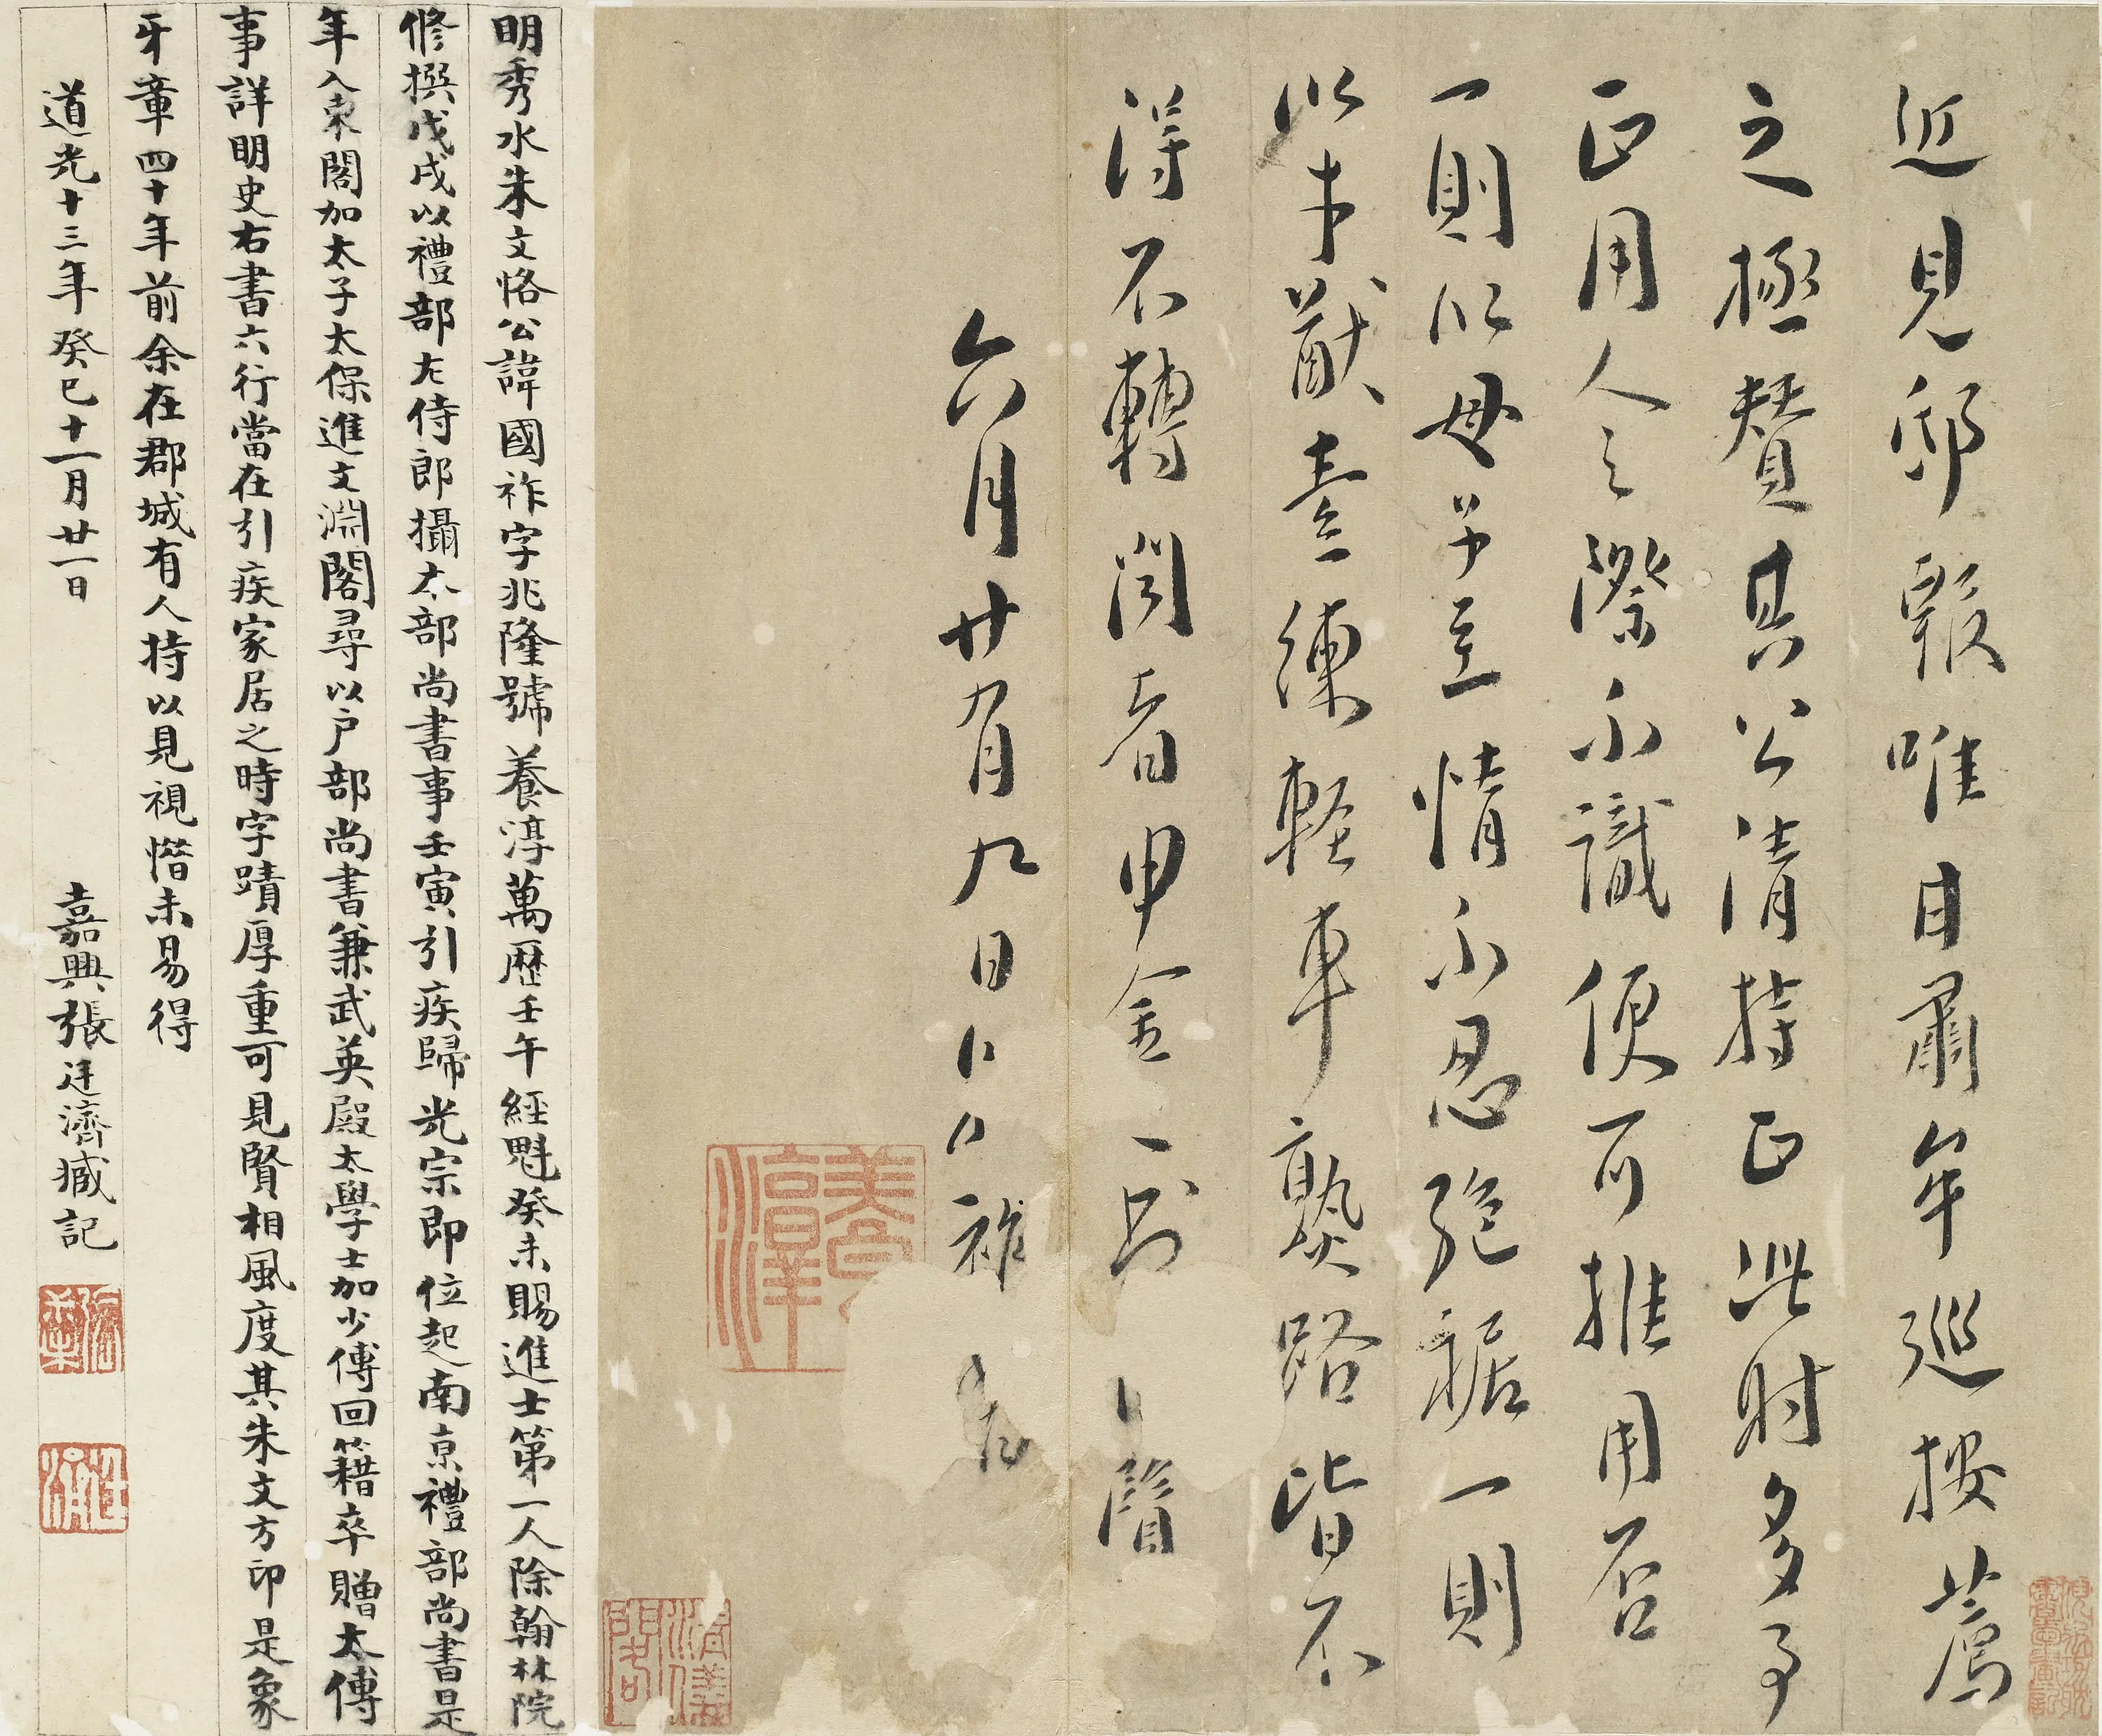 近見邸報唯甘肅牟巡按薦
之極贊其公清持正此時多事
正用人之際不識便可推用否
一則以母子至情不忍絕裾一則
以才猷素練輕車熟路皆不
得不轉聞者甲金
六月廿有九日
養淳
明秀水朱文恪公諱國祚字兆隆號養淳萬歷壬午經魁癸未賜進士第一人除翰林院
修撰戊戌以禮部左侍郎攝本部尚書事壬寅引疾歸光宗即位起南京禮部尚書是
年入東閣加太子太保進文淵閣尋以户部尚書兼武英殿太學士加少傅回籍卒贈太傅
事詳明史右書六行當在引疾家居之時字蹟厚重可見賢相風度其朱文方印是象
牙章四十年前余在郡城有人持以見視惜未易得
道光十三年癸巳十一月廿一日 嘉興張廷濟臧記